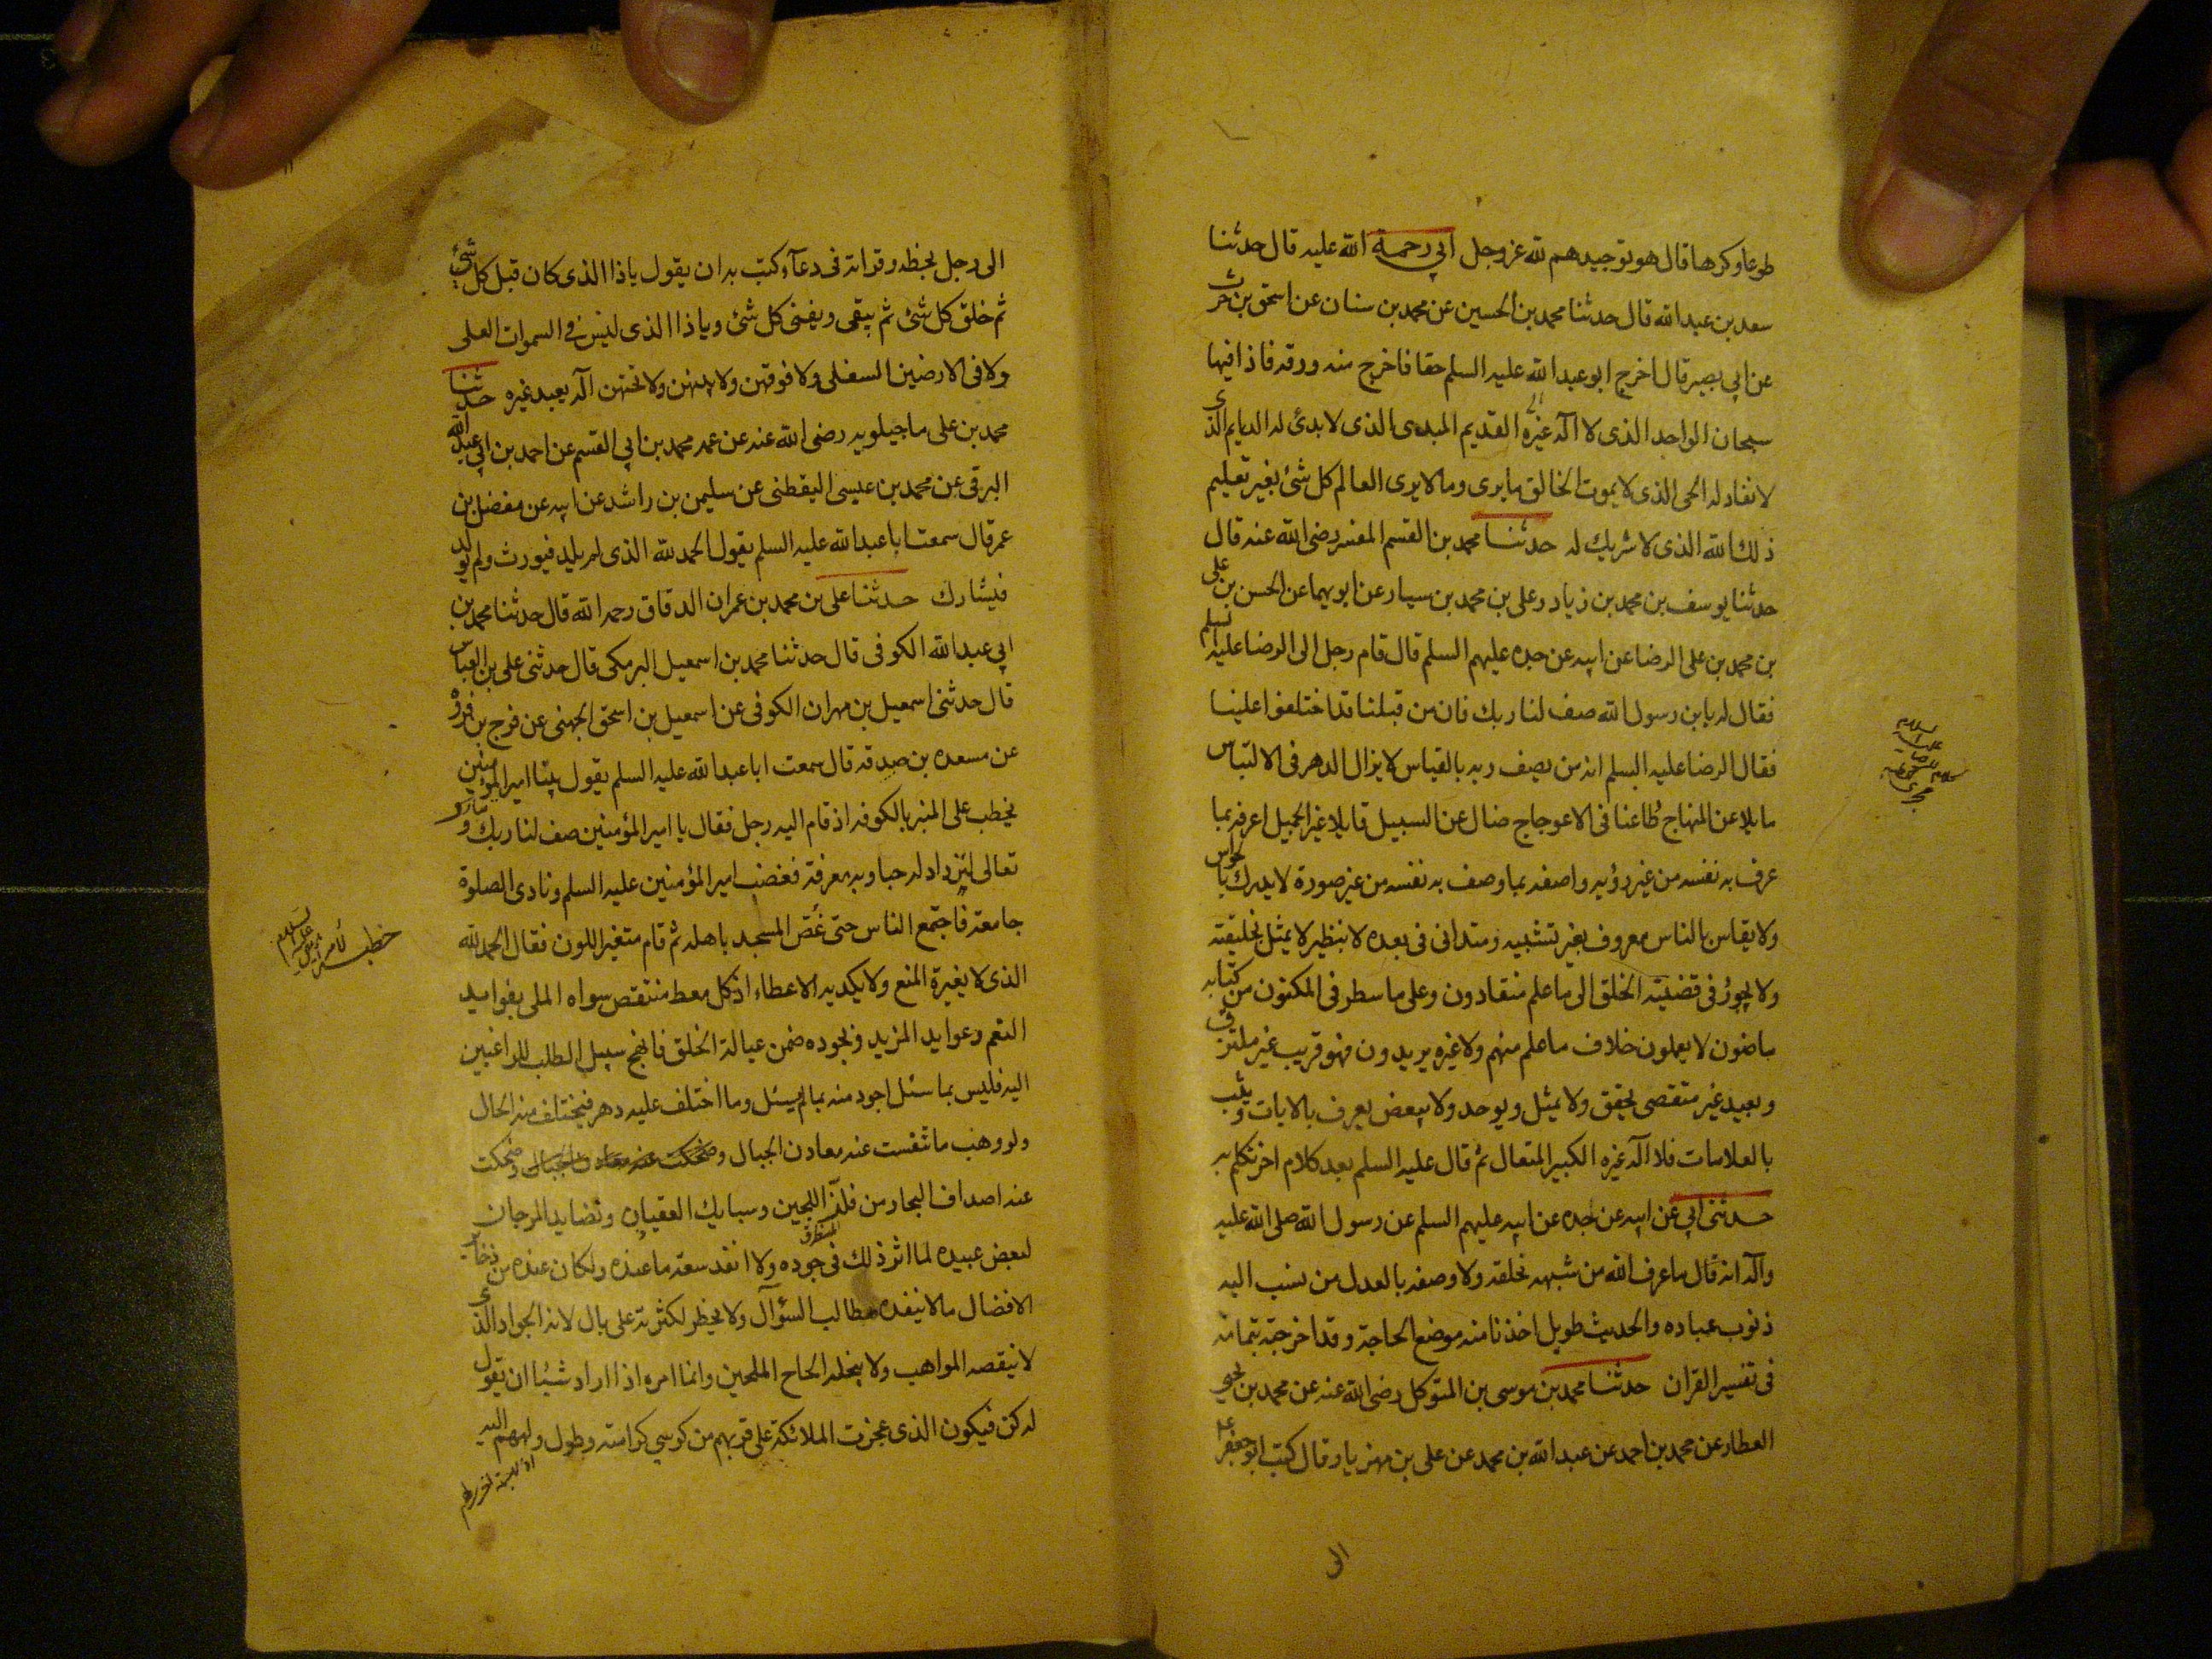 طوعا وكرها قال هو توحيدهم لله عز وجل ابي رحمة الله عليه قال حدثنا
سعد بن عبد الله قال حدثنا محمد بن الحسين عن محمد بن سنان عن اسحق بن حرث
عن ابي بصير قال اخرج ابو عبد الله عليه السلم حقا فاخرج منه ورقه فاذا فيها
سبحان الواحد الذى لا اله غيره القديم المبدى الذى لا بدئ له الدايم الذى
لا نفاد له الحى الذى لا يموت الخالق ما يرى وما لا يرى العالم كل شئ بغير تعليم
ذلك الله الذى لا شريك له حدثنا محمد بن القسم المفسر رضى الله عنه قال
حدثنا يوسف بن محمد بن زياد وعلى بن محمد بن سيار عن ابويهما عن الحسن بن على
بن محمد بن على الرضا عن ابيه عن جده عليهم السلم قال قام رجل الى الرضا عليه السلم
فقال له يا بن رسول الله صف لنا ربك فان من قبلنا قد اختلفوا علينا
فقال الرضا عليه السلم انه من يصف ربه بالقياس لا يزال الدهر فى الالتباس
مايلا عن المنهاج طاعنا فى الاعوجاج ضال عن السبيل قايلا غير الجميل اعرفه بما
عرف به نفسه من غير رؤيه واصفه بما وصف به نفسه من غير صورة لا يدرك بالحواس
ولا يقاس بالناس معروف بغير تشبيه ومتدانى فى بعده لا بنظير لا يمثل بخليقته
ولا يجوز فى قضيته الخلق الى ما علم منقادون وعلى ما سطر فى المكنون من كتابه
ماضون لا يعلمون خلاف ما علم منهم ولا غيره يريدون فهو قريب غير ملتزق
وبعيد غير متقصى يحقق ولا يمثل ويوحد ولا يبعض يعرف بالايات ويثبت
بالعلامات فلا اله غيره الكبير المتعال ثم قال عليه السلم بعد كلام اخر تكلم به
حدثنى ابي عن ابيه عن جده عن ابيه عليهم السلم عن رسول الله صلى الله عليه
وآله انه قال ما عرف الله من شبهه بخلقه ولا وصفه بالعدل من نسب اليه
ذنوب عباده والحديث طويل اخذنا منه موضع الحاجة وقد اخرجته بتمامه
فى تفسير القران حدثنا محمد بن موسى بن المتوكل رضى الله عنه عن محمد بن يحيى
العطار عن محمد بن احمد عن عبد الله بن محمد عن على بن مهزيار قال كتب ابو جعفر
الى
الى رجل بخطه وقراته فى دعآء كتب به ان يقول ياذا الذى كان قبل كل شئ
ثم خلق كل شئ ثم يبقى ويفنى كل شئ وياذا الذى ليس فى السموات العلى
ولا فى الارضين السفلى ولا فوقهن ولا بينهن ولا تحتهن اله يعبد غيره حدثنا
محمد بن على ماجيلويه رضى الله عنه عن عمه محمد بن ابي القسم عن احمد بن ابي عبد الله
البرقى عن محمد بن عيسى اليقطنى عن سليمن بن راشد عن ابيه عن مفضل بن
عمر قال سمعت ابا عبد الله عليه السلم يقول الحمد لله الذى لم يلد فيورث ولم يولد
فيشارك حدثنا على بن محمد بن عمران الدقاق رحمه الله قال حدثنا محمد بن
ابي عبد الله الكوفى قال حدثنا محمد بن اسمعيل البرمكى قال حدثنى على بن العباس
قال حدثنى اسمعيل بن مهران الكوفى عن اسمعيل بن اسحق الجهنى عن فرج بن فروه
عن مسعده بن صدقه قال سمعت ابا عبد الله عليه السلم يقول بينا امير المؤمنين
يخطب على المنبر بالكوفه اذ قام اليه رجل فقال يا امير المؤمنين صف لنا ربك تبارك و
تعالى لنزداد له حبا وبه معرفة فغضب امير المؤمنين عليه السلم ونادى الصلوة
جامعة فاجتمع الناس حتى غص المسجد باهله ثم قام متغير اللون فقال الحمد لله
الذى لا يغيرة المنع ولا يكديه الاعطاء اذ كل معط منتقص سواه الملى بفوايد
النعم وعوايد المزيد وبجوده ضمن عيالة الخلق فانهج سبيل الطلب للراغبين
اليه فليس بما سئل اجود منه بما لم يسئل وما اختلف عليه دهر فيختلف منه الحال
ولو وهب ما تنفست عنه معادن الجبال وضحكت
عنه اصداف البحار من فلز اللجين وسبايك العقيان ونضايد المرجان
لبعض عبيده لما اثر ذلك فى جوده ولا انفد سعة ما عنده ولكان عنده من ذخاير
الافضال ما لا ينفده مطالب السؤآل ولا يخطر لكثرته على بال لانه الجواد الذى
لا ينقصه المواهب ولا يبخله الحاح الملحين وانما امره اذا اراد شيئا ان يقول
له كن فيكون الذى عجزت الملائكة على قربهم من كرسي كرامته وطول ولههم اليه
خطبه لامير المؤمنين عليه السلام